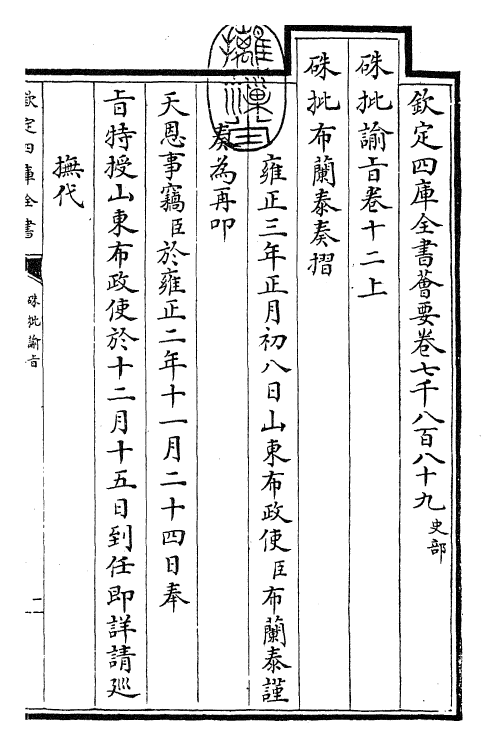 欽定四庫全書薈要卷七千八百八十九 史部
硃批諭旨卷十二上
硃批布蘭泰奏摺
雍正三年正月初八日山東布政使臣布蘭泰謹
奏為再叩
天恩事竊臣於雍正二年十一月二十四日奉
旨特授山東布政使於十二月十五日到任即詳請廵
撫代
欽定四庫全書
硃批諭旨
二